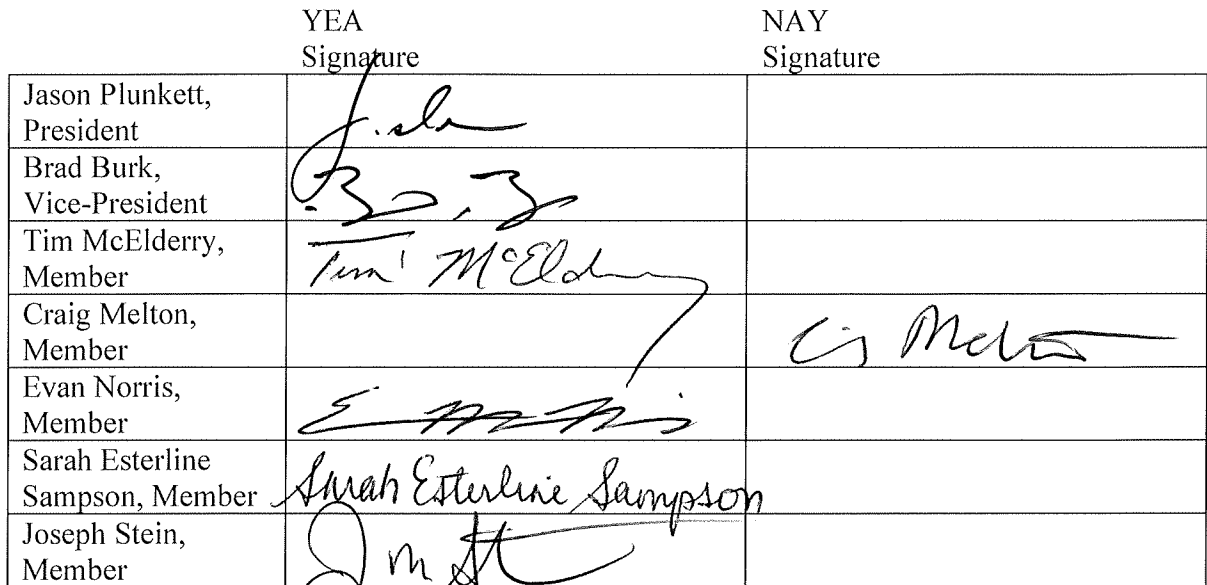 YEA NAY
Signature Signature
Jason Plunkett,
President
Brad Burk,
Vice-President
Tim McElderry, Tim McEld
Member
Craig Melton,
Member
Evan Norris,
Member
Sarah Esterline
Sampson, Member Sarah Esterline Sampson
Joseph Stein,
Member